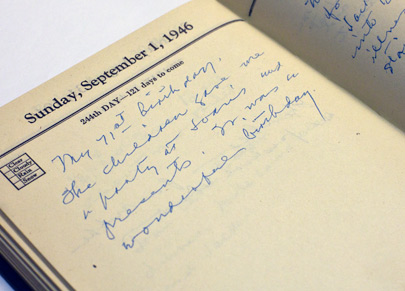 Sunday, September 1, 1946
244th DAY—121 days to come
Clear
Cloudy
Rain
Snow
My 71st birthday.
The children gave me
a party at Joan's and
presents. It was a
wonderful birthday.